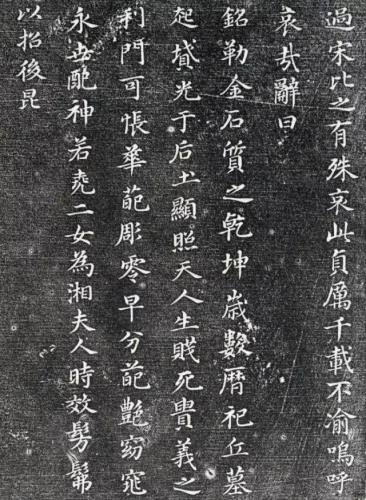 過宋比之有殊哀此貞厲千載不渝嗚呼
哀哉辭曰
銘勒金石質之乾坤歲數曆祀丘墓
起墳光于后土顯照天人生賎死貴義之
利門可悵華葩彫零早分葩艶窈窕
永世配神若堯二女為湘夫人時效髣髴
以招後昆